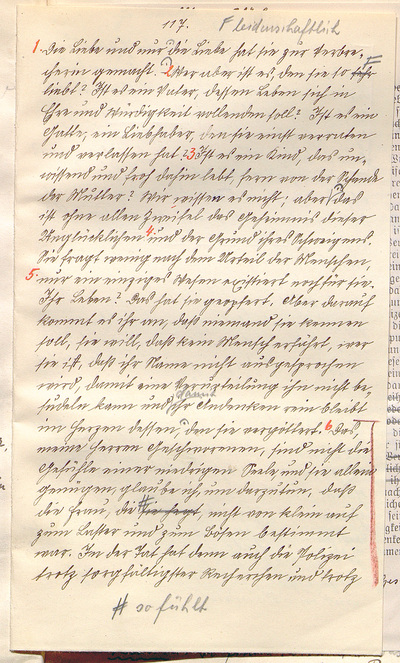 117. F leidenschaftlich
1. Die Liebe und nur die Liebe hat sie zur Verbre-
cherin gemacht. 2 Wer aber ist es, den sie so sehr F
liebt? Ist es ein Vater, dessen Leben sich in
Ehre und Würdigkeit vollenden soll? Ist es ein
Gatte, ein Liebhaber, den sie einst verraten
und verlassen hat? 3 Ist es ein Kind, das un-
wissend und froh dahin lebt, fern von der Schande
der Mutter? Wir wissen es nicht; aber das
ist ohne allen Zweifel das Geheimnis dieser
Unglücklichen 4 und der Grund ihres Schweigens.
Sie fragt wenig nach dem Urteil der Menschen,
5. nur ein einziges Wesen existiert noch für sie.
Ihr Leben? Das hat sie geopfert. Aber darauf
kommt es ihr an, daß niemand sie kennen
soll, sie will, daß kein Mensch erfährt, wer
sie ist, daß ihr Name nicht ausgesprochen
wird, damit eine Verurteilung ihn nicht be-
sudeln kann und damit ihr Andenken rein bleibt
im Herzen dessen, den sie vergöttert. 6 Das,
meine Herren Geschworenen, sind nicht die
Gefühle einer niedrigen Seele und sie allein
genügen, glaube ich, um darzutun, daß
die Frau, die # nicht von klein auf
zum Laster und zum Bösen bestimmt
war. In der Tat hat denn auch die Polizei
trotz sorgfältigster Recherchen und trotz
# so fühlt